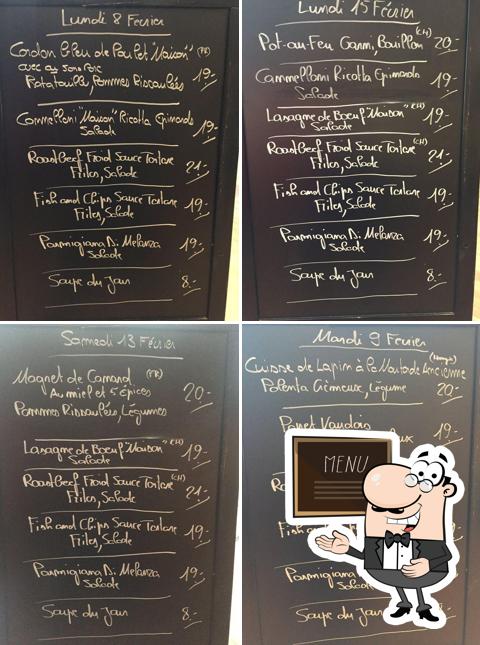 Lundi 8 Février
Cordon bleu de Poulet "Maison" (FR)
avec ou sans Porc
Ratatouille, Pommes Rissolées 19.-
Cannelloni "Maison" Ricotta Epinards
Salade 19.-
Roastbeef Froid Sauce Tartare
Frites, Salade 21.-
Fish and Chips Sauce Tartare
Frites, Salade 19.-
Parmigiana Di Melanza 19.-
Salade
Soupe du Jour 8.-
Lundi 15 Février
Pot-au-Feu Garni, Bouillon (CH) 20.-
Cannelloni Ricotta Epinards 19.-
Salade
Lasagne de Boeuf "Maison" (CH) 19.-
Salade
Roastbeef Froid Sauce Tartare (CH)
Frites, Salade 21.-
Fish and Chips Sauce Tartare
Frites, Salade 19.-
Parmigiana Di Melanza 19.-
Salade
Soupe du Jour 8.-
Samedi 13 Février
Magret de Canard (FR)
Au miel et 5 épices 20.-
Pommes Rissolées, Légumes
Lasagne de Boeuf "Maison" (CH) 19.-
Salade
Roastbeef Froid Sauce Tartare (CH)
Frites, Salade 21.-
Fish and Chips Sauce Tartare
Frites, Salade 19.-
Parmigiana Di Melanza 19.-
Salade
Soupe du Jour 8.-
Mardi 9 Février
Cuisse de Lapin à la Moutarde Ancienne
Polenta Crémeux, Légume 20.-
Papet Vaudois 19.-
MENU
Fish and
Parmigiana
Soupe du Jour